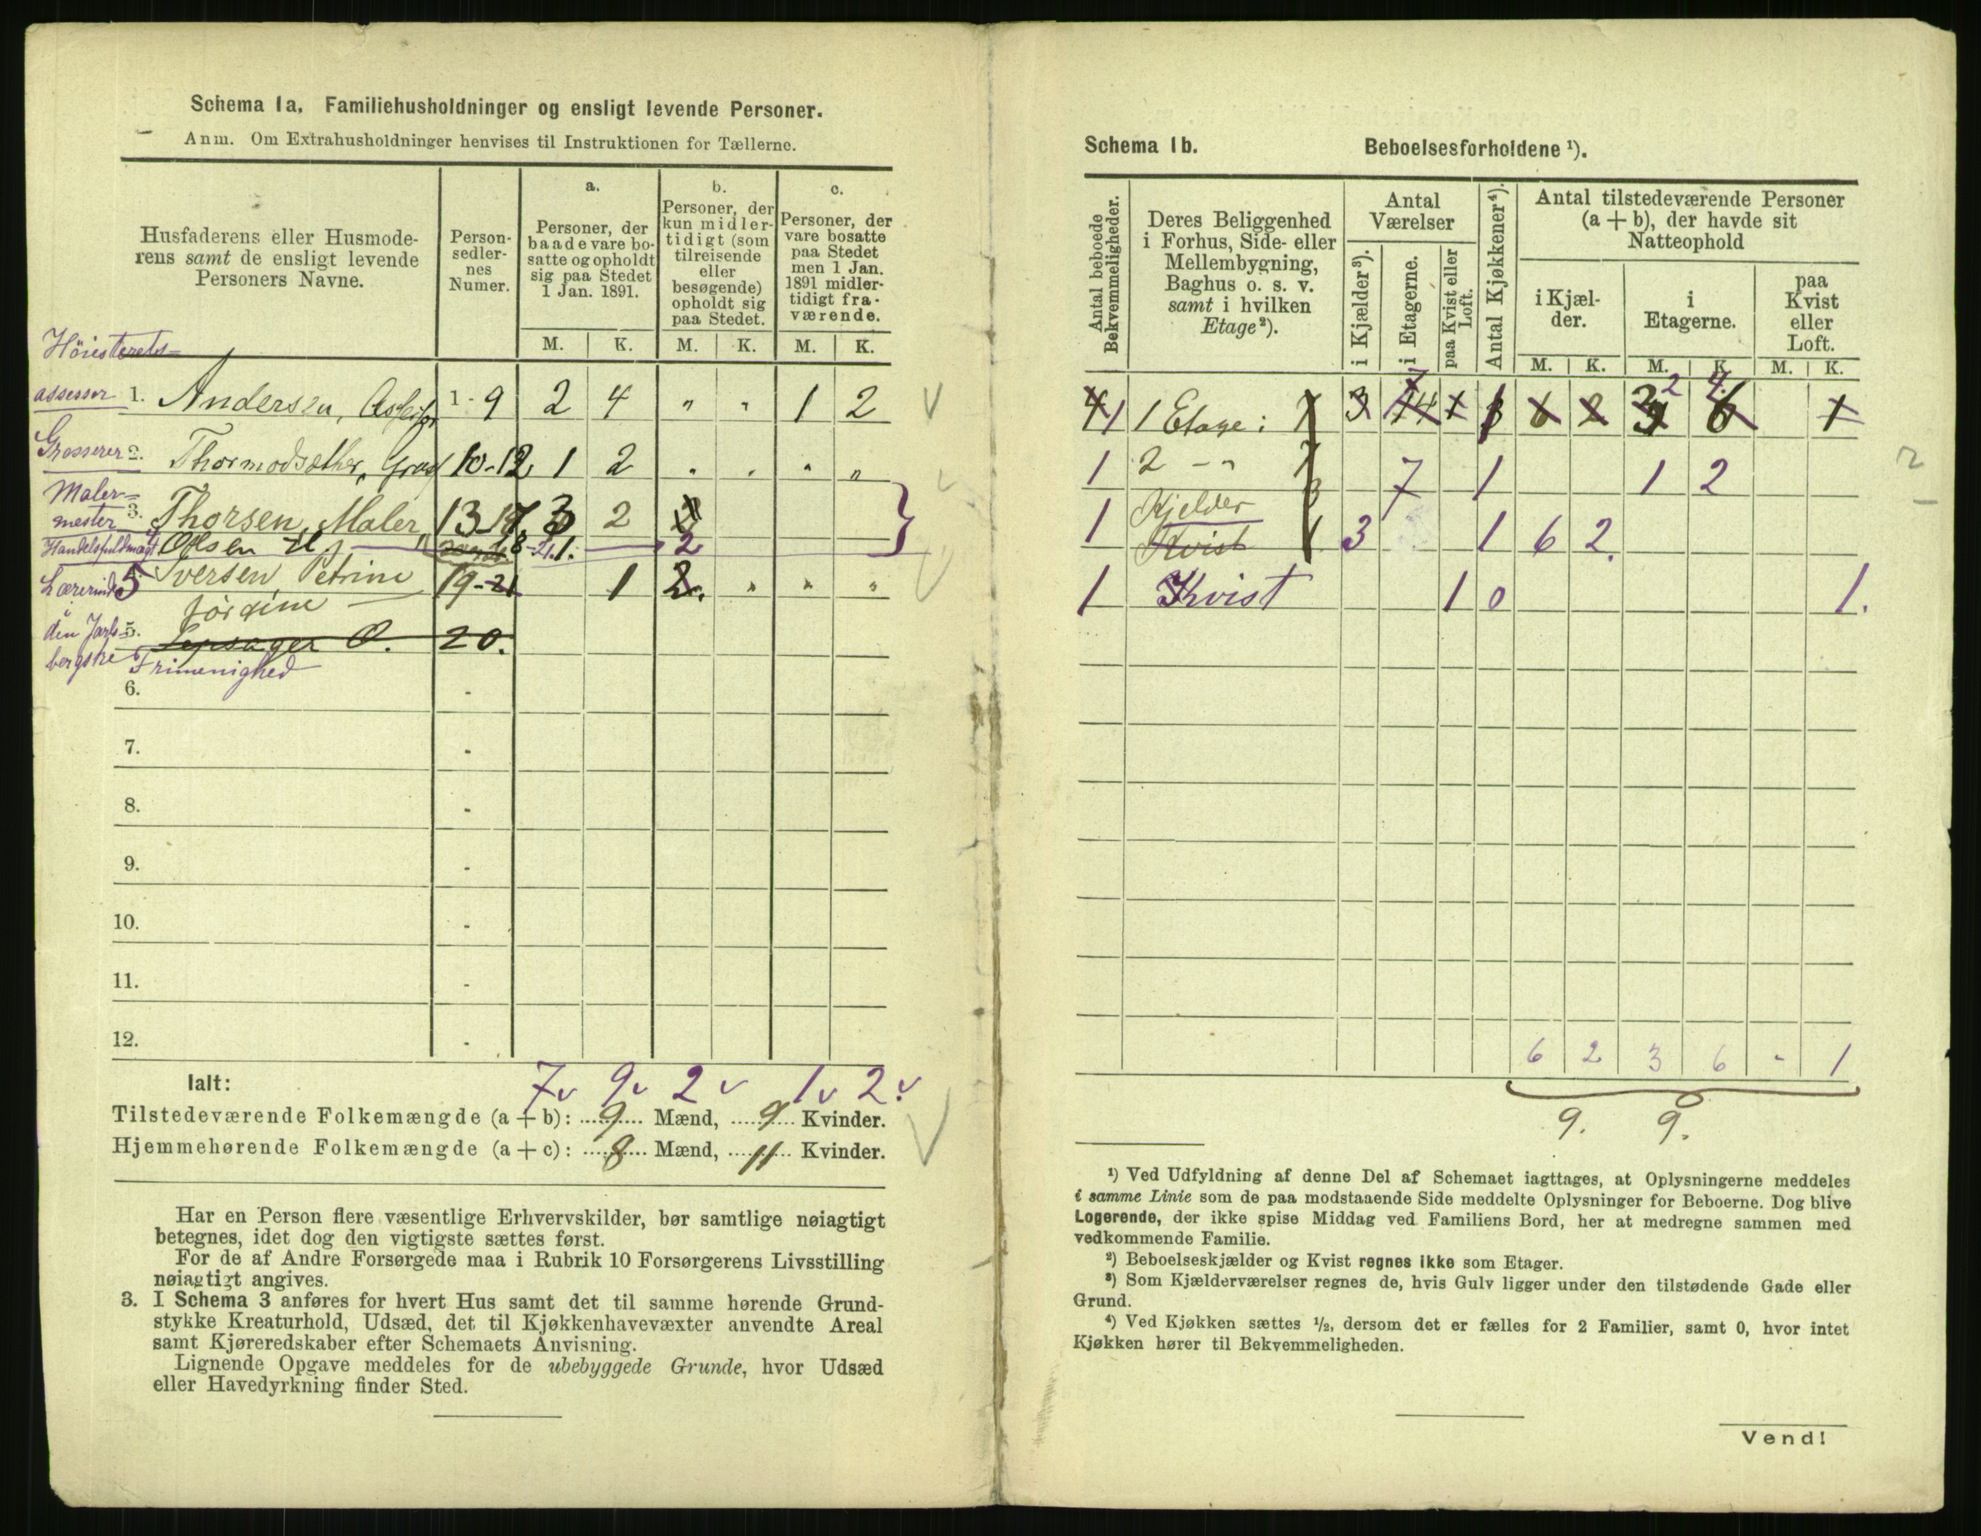 Schema 1a. Familiehusholdninger og ensligt levende Personer.
Anm. Om Extrahusholdninger henvises til Instruktionen for Tællerne.
Husfaderens eller Husmoderens samt de ensligt levende Personers Navne.
Person-sedlernes Numer.
a.
Personer, der baade vare bosatte og opholdt sig paa Stedet 1 Jan. 1891.
b.
Personer, der kun midlertidigt (som tilreisende eller besøgende) opholdt sig paa Stedet.
c.
Personer, der vare bosatte paa Stedet men 1 Jan. 1891 midlertidigt fraværende.
M. K. M. K. M. K.
Høiesterets-
assessor 1. Andersen, 1-9 2 4 " " 1 2
Grosserer 2. Thormodsæther, 10-12 1 2 . . " "
Maler-
mester 3. Thorsen, Maler 13 2
Handelsfuldmægt Olsen 1. 2
Lærerinde 5 Iversen Petrine 19 1 2. " " "
Jørgine
den Jarls- 5. O. 20.
bergske Frimenighed
6. -
7. -
8. -
9. -
10. -
11. -
12. -
Ialt: 7 9 2 1 2
Tilstedeværende Folkemængde (a + b): 9 Mænd, 9 Kvinder.
Hjemmehørende Folkemængde (a + c): 8 Mænd, 11 Kvinder.
Har en Person flere væsentlige Erhvervskilder, bør samtlige nøiagtigt
betegnes, idet dog den vigtigste sættes først.
For de af Andre Forsørgede maa i Rubrik 10 Forsørgerens Livsstilling
nøiagtigt angives.
3. I Schema 3 anføres for hvert Hus samt det til samme hørende Grund-
stykke Kreaturhold, Udsæd, det til Kjøkkenhavevæxter anvendte Areal
samt Kjøreredskaber efter Schemaets Anvisning.
Lignende Opgave meddeles for de ubebyggede Grunde, hvor Udsæd
eller Havedyrkning finder Sted.
Schema 1b. Beboelsesforholdene ¹).
Antal beboede Bekvemmeligheder.
Deres Beliggenhed i Forhus, Side- eller Mellembygning, Baghus o. s. v. samt i hvilken Etage²).
Antal Værelser
i Kjælder³).
i Etagerne.
paa Kvist eller Loft.
Antal Kjøkkener⁴).
Antal tilstedeværende Personer (a + b), der havde sit Natteophold
i Kjælder.
i Etagerne.
paa Kvist eller Loft.
M. K. M. K. M. K.
1 1 Etage: 7 1 2 4
1 2 - " 7 1 1 2
1 Kjelder 3 1 6 2.
Kvist
1 Kvist 1 0 1.
6 2 3 6 - 1
9. 9.
2
¹) Ved Udfyldning af denne Del af Schemaet iagttages, at Oplysningerne meddeles
i samme Linie som de paa modstaaende Side meddelte Oplysninger for Beboerne. Dog blive
Logerende, der ikke spise Middag ved Familiens Bord, her at medregne sammen med
vedkommende Familie.
²) Beboelseskjælder og Kvist regnes ikke som Etager.
³) Som Kjælderværelser regnes de, hvis Gulv ligger under den tilstødende Gade eller
Grund.
⁴) Ved Kjøkken sættes ½, dersom det er fælles for 2 Familier, samt 0, hvor intet
Kjøkken hører til Bekvemmeligheden.
Vend!